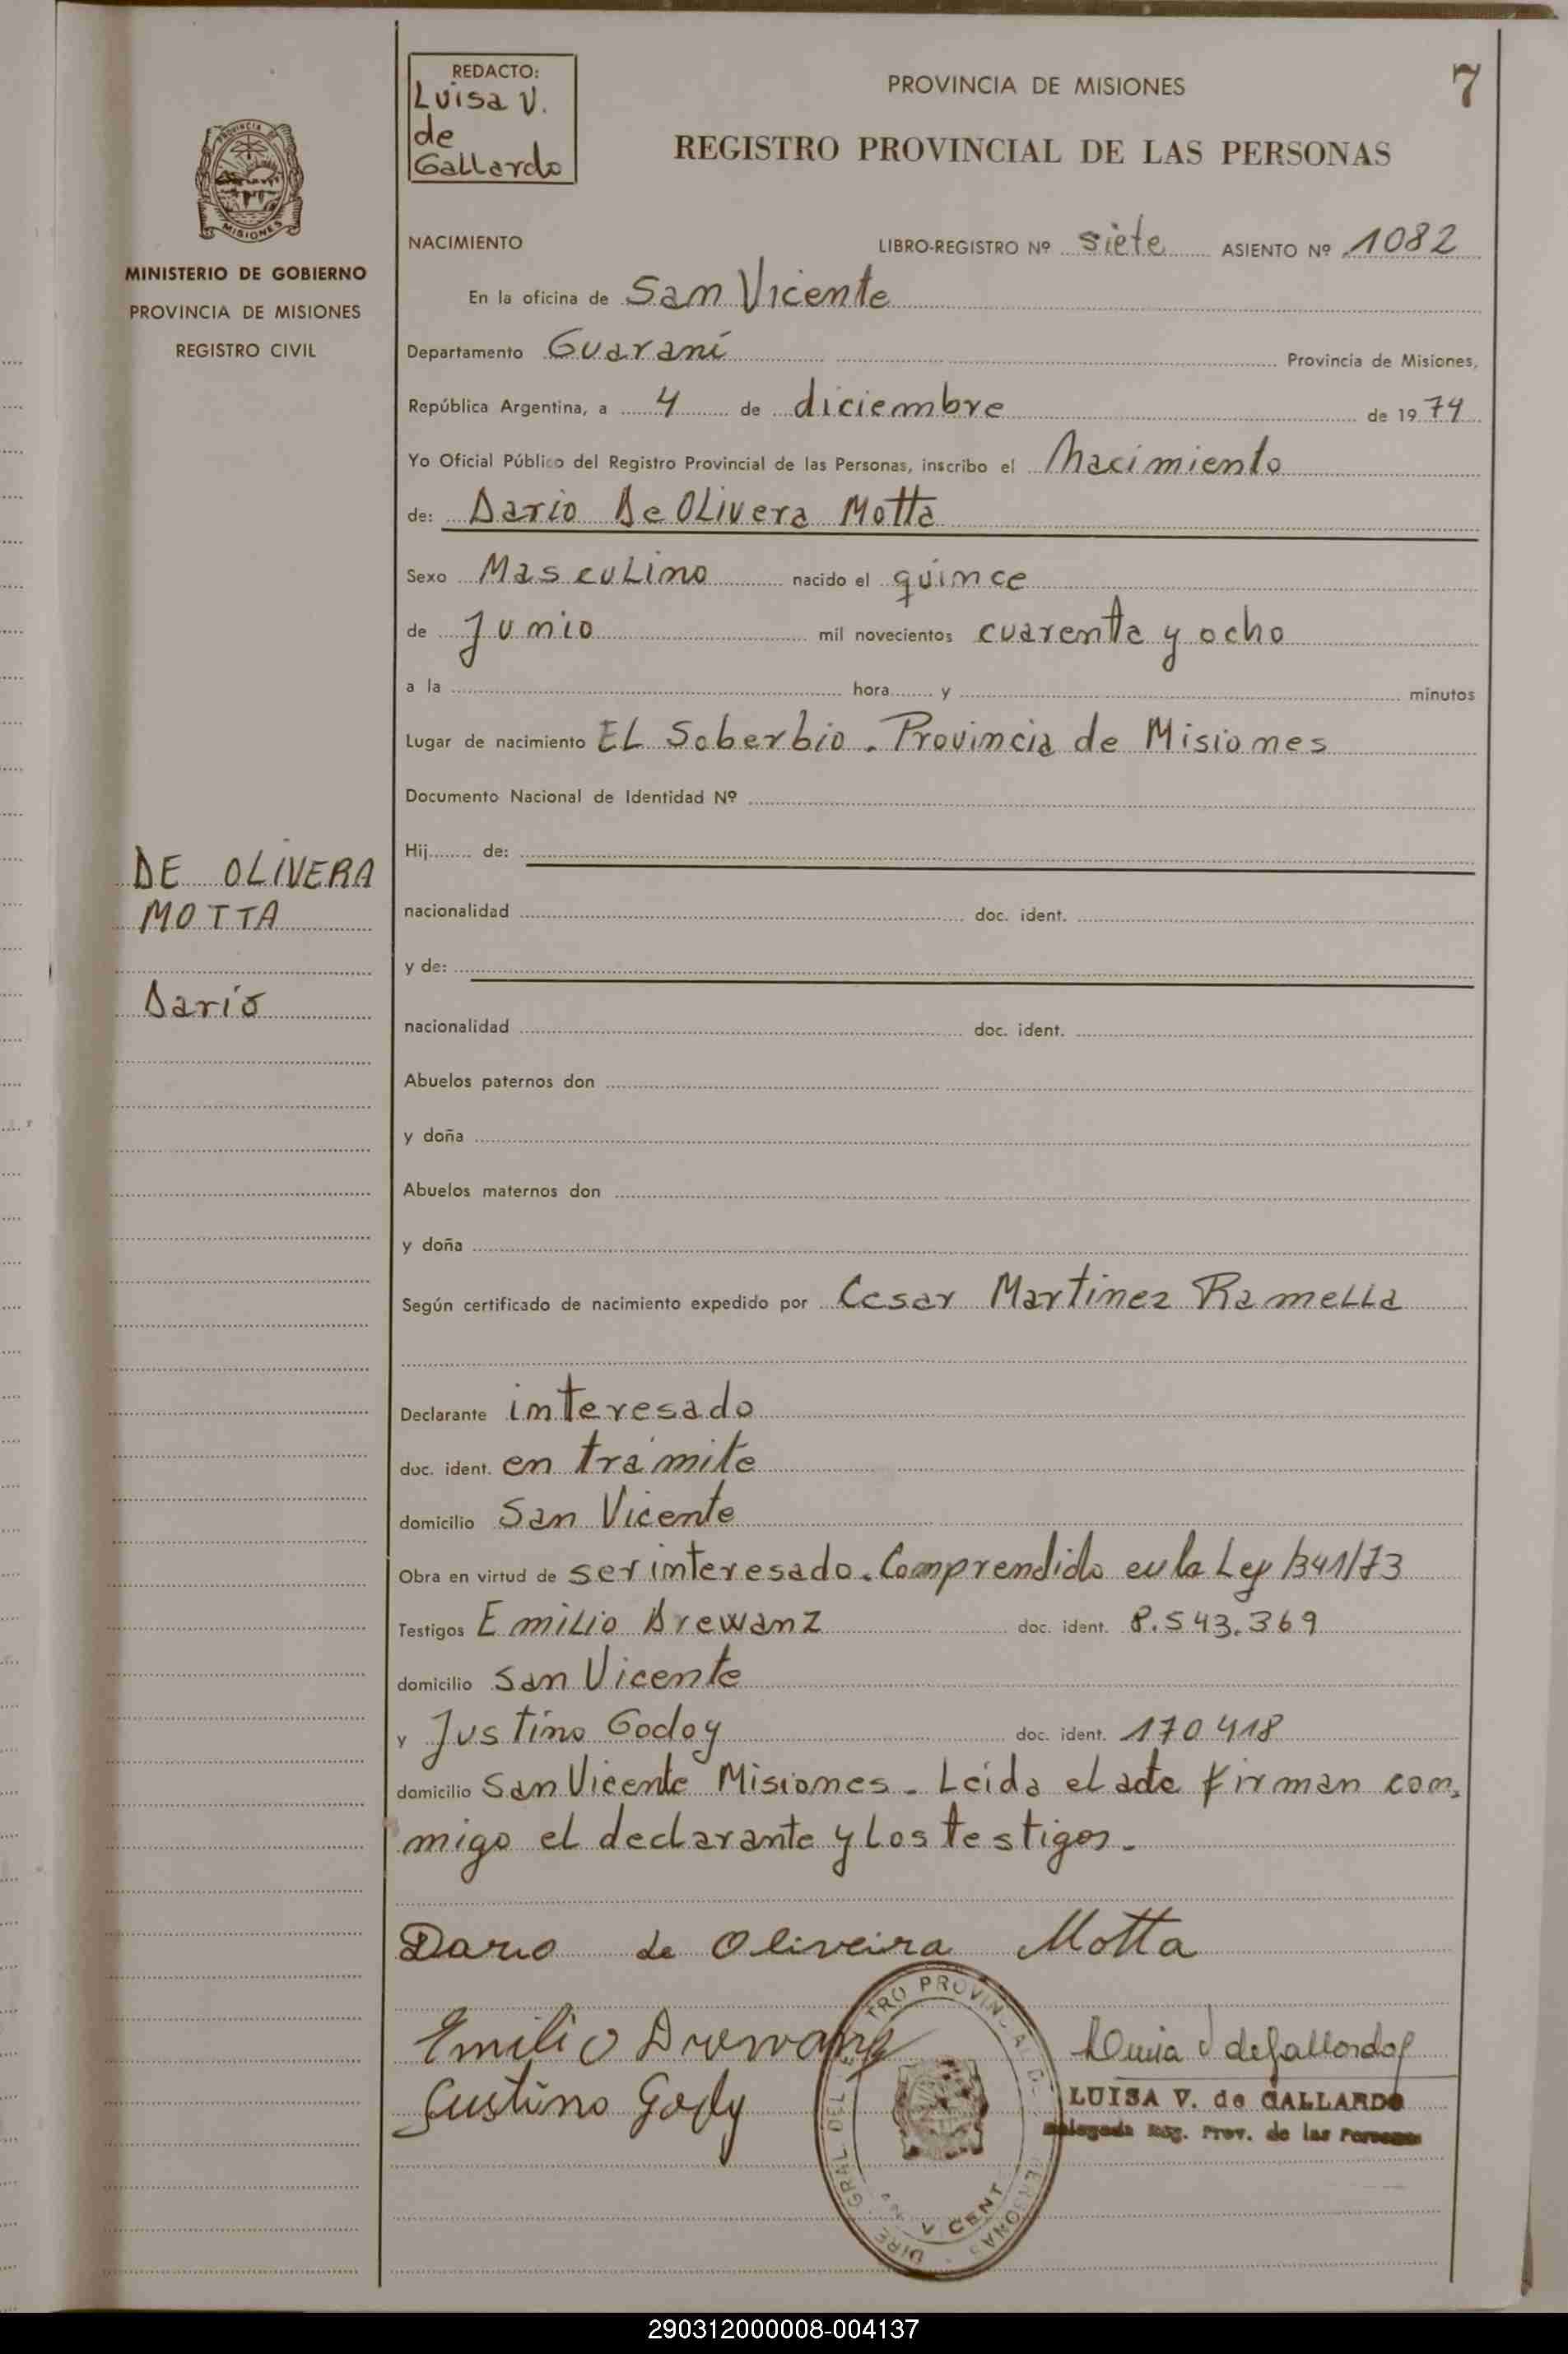 REDACTO:
Luisa V.
de
Gallardo
PROVINCIA DE MISIONES
7
REGISTRO PROVINCIAL DE LAS PERSONAS
PROVINCIA DE
MISIONES
MINISTERIO DE GOBIERNO
PROVINCIA DE MISIONES
REGISTRO CIVIL
NACIMIENTO LIBRO-REGISTRO Nº siete ASIENTO Nº 1082
En la oficina de San Vicente
Departamento Guaraní Provincia de Misiones,
República Argentina, a 4 de diciembre de 1974
Yo Oficial Público del Registro Provincial de las Personas, inscribo el Nacimiento
de: Dario De Olivera Motta
Sexo Masculino nacido el quince
de Junio mil novecientos cuarenta y ocho
a la hora y minutos
Lugar de nacimiento El Soberbio. Provincia de Misiones
Documento Nacional de Identidad Nº
Hij de:
DE OLIVERA
MOTTA
nacionalidad doc. ident.
y de:
Darío
nacionalidad doc. ident.
Abuelos paternos don
y doña
Abuelos maternos don
y doña
Según certificado de nacimiento expedido por Cesar Martinez Ramella
Declarante interesado
doc. ident. en trámite
domicilio San Vicente
Obra en virtud de ser interesado. Comprendido en la Ley 1341/73
Testigos Emilio Drewanz doc. ident. 8.543.369
domicilio San Vicente
y Justino Godoy doc. ident. 170418
domicilio San Vicente Misiones. Leída el acta firman con,
migo el declarante y los testigos.
Dario de Oliveira Motta
Emilio Drewanz
Luisa V de Gallardo
Justino Gody
LUISA V. de GALLARDO
Delegada Reg. Prov. de las Personas
290312000008-004137